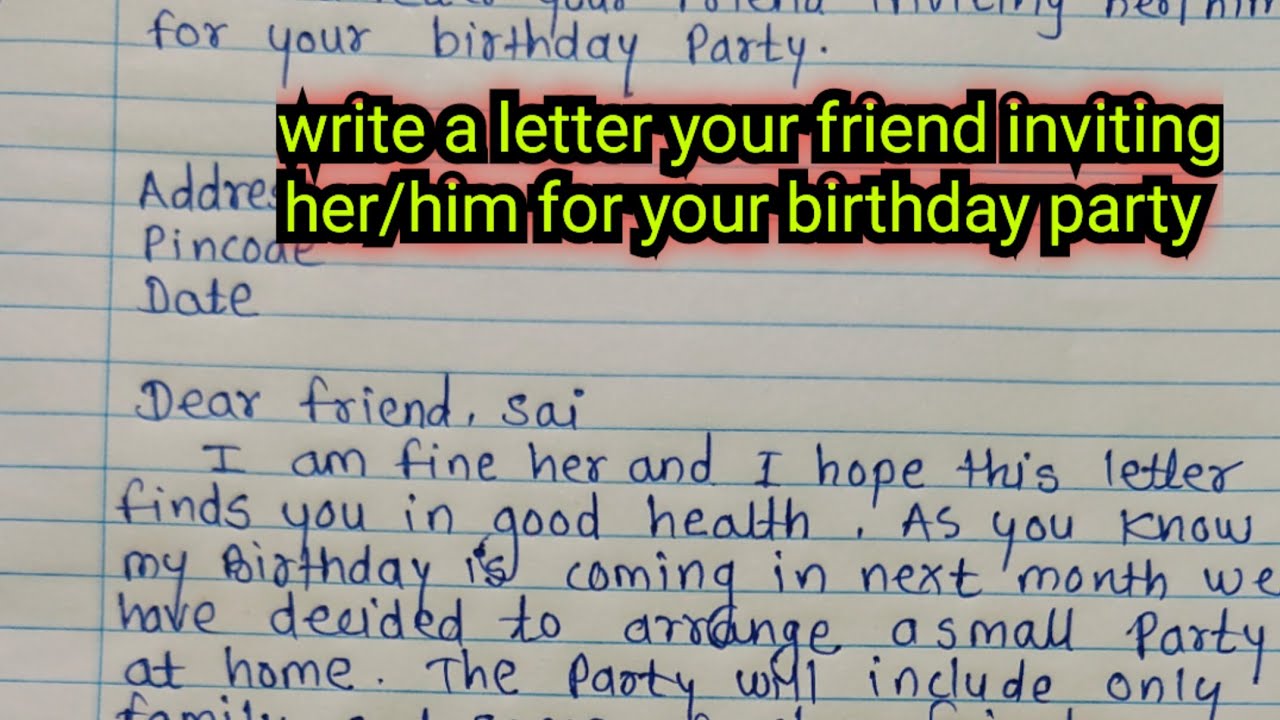 your friend inviting her/him
for your birthday Party.
write a letter your friend inviting
her/him for your birthday party
Address
Pincode
Date
Dear friend, Sai
I am fine her and I hope this letter
finds you in good health. As you know
my Birthday is coming in next month we
have decided to arrange a small Party
at home. The Party will include only
family